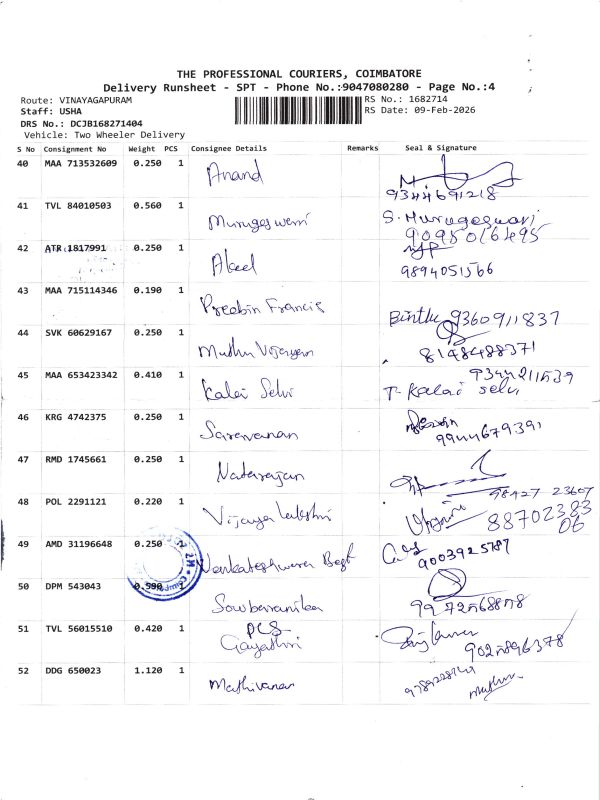 THE PROFESSIONAL COURIERS, COIMBATORE
Delivery Runsheet - SPT - Phone No.:9047080280 - Page No.:4
Route: VINAYAGAPURAM
RS No.: 1682714
Staff: USHA
RS Date: 09-Feb-2026
DRS No.: DCJB168271404
Vehicle: Two Wheeler Delivery
S No Consignment No Weight PCS Consignee Details Remarks Seal & Signature
40 MAA 713532609 0.250 1 Anand
9344691218
41 TVL 84010503 0.560 1 Murugeswari S. Murugeswari
9095016495
42 ATR 1817991 0.250 1
9894051566
43 MAA 715114346 0.190 1 Preebin Francis 9360911837
44 SVK 60629167 0.250 1 Muthu Vijayan
8148488371
45 MAA 653423342 0.410 1 Kalai Selvi T. Kalai selvi
46 KRG 4742375 0.250 1 Saravanan
9944679391
47 RMD 1745661 0.250 1 Natarajan
98427 23607
48 POL 2291121 0.220 1 Vijaya Lakshmi
88702383
06
49 AMD 31196648 0.250 Venkateshwara
9003925787
50 DPM 543043 0.590 Sowbaranika
51 TVL 56015510 0.420 1 PCS
Gayathri
9028896378
52 DDG 650023 1.120 1 Mathivanan